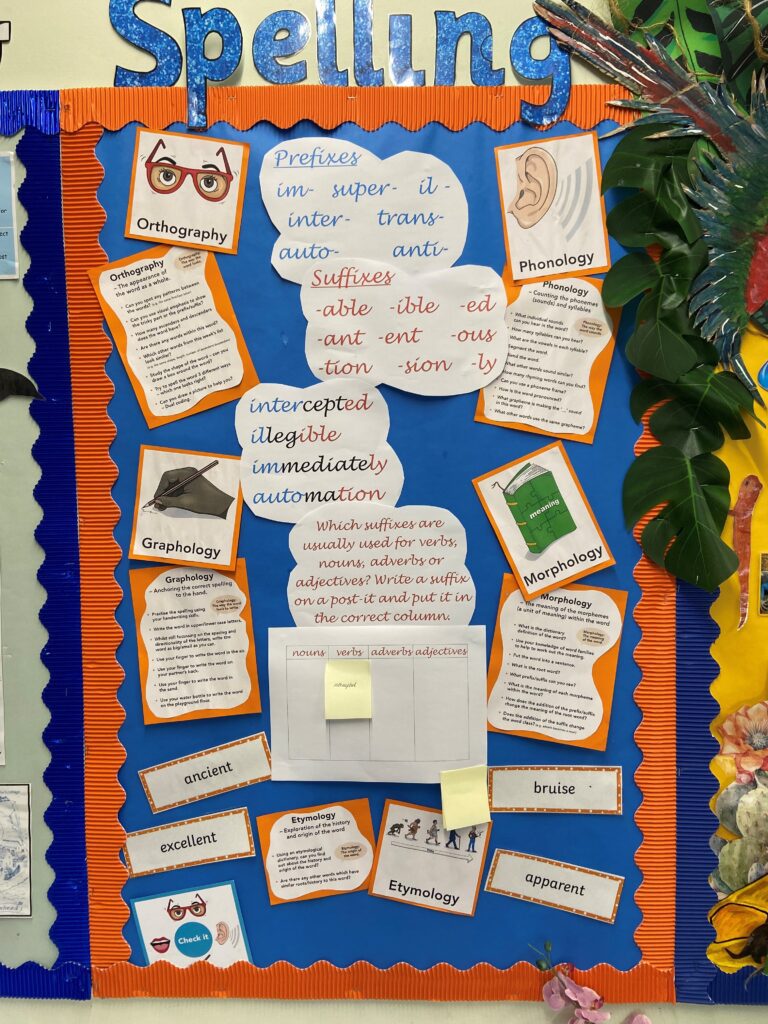 Spelling
Orthography
Prefixes
im- super- il -
inter- trans-
auto- anti-
Phonology
Suffixes
-able -ible -ed
-ant -ent -ous
-tion -sion -ly
Orthography
– The appearance of
the word as a whole.
Can you spot any patterns between
the words?
Can you use visual emphasis to show
the tricky part or the prefix/suffix?
How many ascenders and descenders
does the word have?
Are there any words within this word?
Which other words from this week's list
look similar?
Study the shape of the word – can you
draw a box around the word?
Try to spell the word 3 different ways
– which one looks right?
Can you draw a picture to help you?
– Dual coding.
Phonology
– Counting the phonemes
(sounds) and syllables
What individual sounds
can you hear in the word?
How many syllables can you hear?
What are the vowels in each syllable?
Segment the word.
the word.
What other words sound similar?
How many rhyming words can you find?
Can you use a phoneme frame?
How is the word pronounced?
What grapheme is making the '...' sound
in this word?
What other words use the same grapheme?
intercepted
illegible
immediately
automation
Graphology
meaning
Morphology
Which suffixes are
usually used for verbs,
nouns, adverbs or
adjectives? Write a suffix
on a post-it and put it in
the correct column.
nouns verbs adverbs adjectives
Graphology
– Anchoring the correct spelling
to the hand.
Graphology:
The way the word
Practise the spelling using
your handwriting cues.
Write the word in upper/lower case letters.
Whilst still focussing on the spacing and
directionality of the letters, write the
word as big/small as you can.
Use your finger to write the word in the air.
Use your finger to write the word on
your partner's back.
Use your finger to write the word in
the sand.
Use your water bottle to write the word
on the playground floor.
Morphology
– The meaning of the morphemes
(a unit of meaning) within the word
What is the dictionary
definition of the word?
Use your knowledge of word families
to help to work out the meaning.
Put the word into a sentence.
What is the root word?
What prefix/suffix can you see?
What is the meaning of each morpheme
within the word?
How does the addition of the prefix/suffix
change the meaning of the root word?
Does the addition of the suffix change
the word class?
ancient
bruise
excellent
apparent
Etymology
– Exploration of the history
and origin of the word
Etymology:
The origin of
the word
Using an etymological
dictionary, can you find
out about the history and
origin of the word?
Are there any other words which have
similar roots/history to this word?
Etymology
Check it